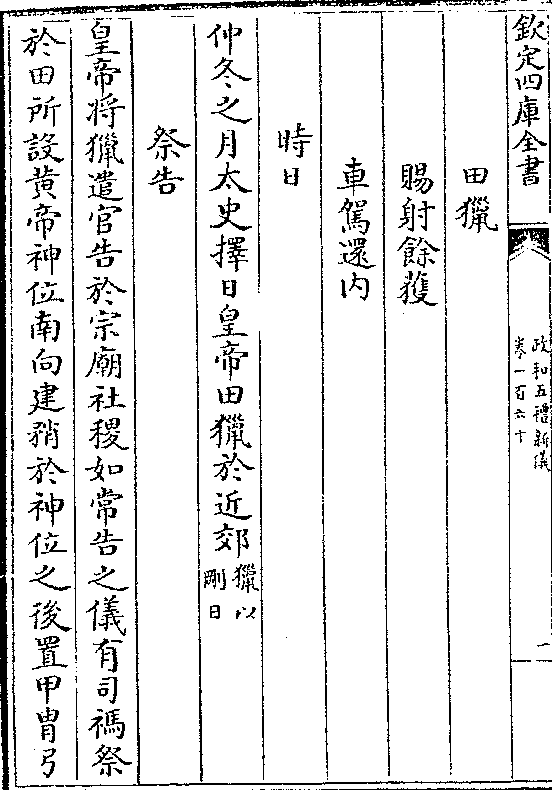 欽定四庫全書
政和五禮新儀
卷一百六十
一
田獵
賜射餘獲
車駕還内
時日
仲冬之月太史擇日皇帝田獵於近郊獵以
剛日
祭告
皇帝將獵遣官告於宗廟社稷如常告之儀有司禡祭
於田所設黄帝神位南向建矟於神位之後置甲胄弓